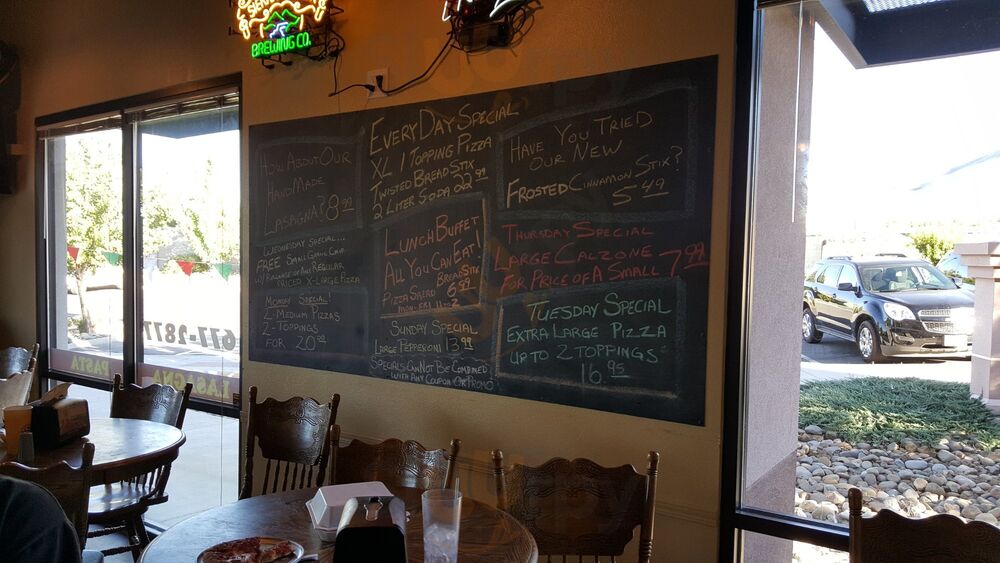 BREWING CO.
How About Our
HandMade
Lasagna? 8 99
Wednesday Special...
FREE Small Garlic Chix
w/ Purchase of Any Regular
Priced X-Large Pizza
Monday Special
2-Medium Pizzas
2-Toppings
For 20.99
EveryDay Special
XL 1 Topping Pizza
Twisted BreadStix
2 Liter Soda 22.99
Lunch Buffet
All You Can Eat!
BreadStix
Pizza Salad 6.99
Mon-Fri 11-2
Sunday Special
Large Pepperoni 13.99
Specials Can Not Be Combined
With Any Coupon Or Promo
Have You Tried
Our New
Frosted Cinnamon Stix?
5.49
Thursday Special
Large Calzone
For Price of A Small 7.99
Tuesday Special
Extra Large Pizza
Up to 2 Toppings
16.95
677-1877
PASTA
LASAGNA